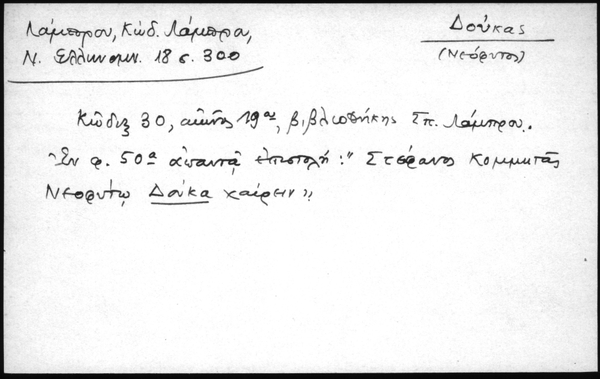 Λάμπρου, Κώδ. Λάμπρου,
Ν. Ελληνομν. 18 σ. 300
Δούκας
(Νεόφυτος)
Κώδιξ 30, αἰῶνος 19ου, βιβλιοθήκης Σπ. Λάμπρου.
Ἐν φ. 50α ἀπαντᾷ ἐπιστολή: "Στέφανος Κομμητᾶς
Νεοφύτῳ Δούκα χαίρειν".